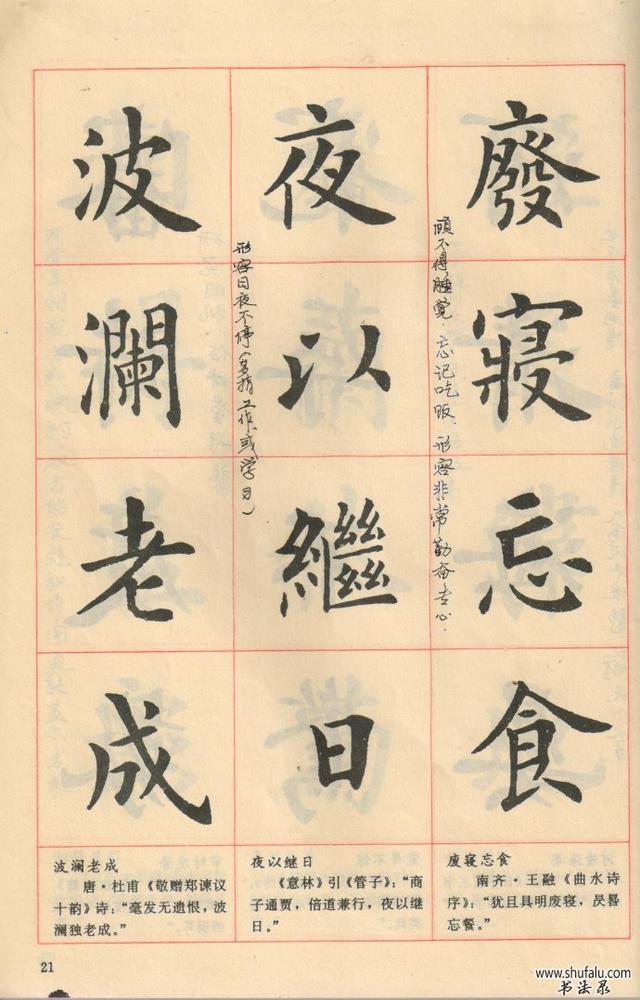 廢寢忘食
顾不得睡觉.忘记吃饭.形容非常勤奋专心.
夜以繼日
形容日夜不停(多指工作或学习)
波瀾老成
废寝忘食
南齐·王融《曲水诗
序》:“犹且具明废寝,昃晷
忘餐。”
夜以继日
《意林》引《管子》:“商
子通贾,倍道兼行,夜以继
日。”
波澜老成
唐·杜甫《敬赠郑谏议
十韵》诗:“毫发无遗恨,波
澜独老成。”
21
www.shufalu.com
书法录